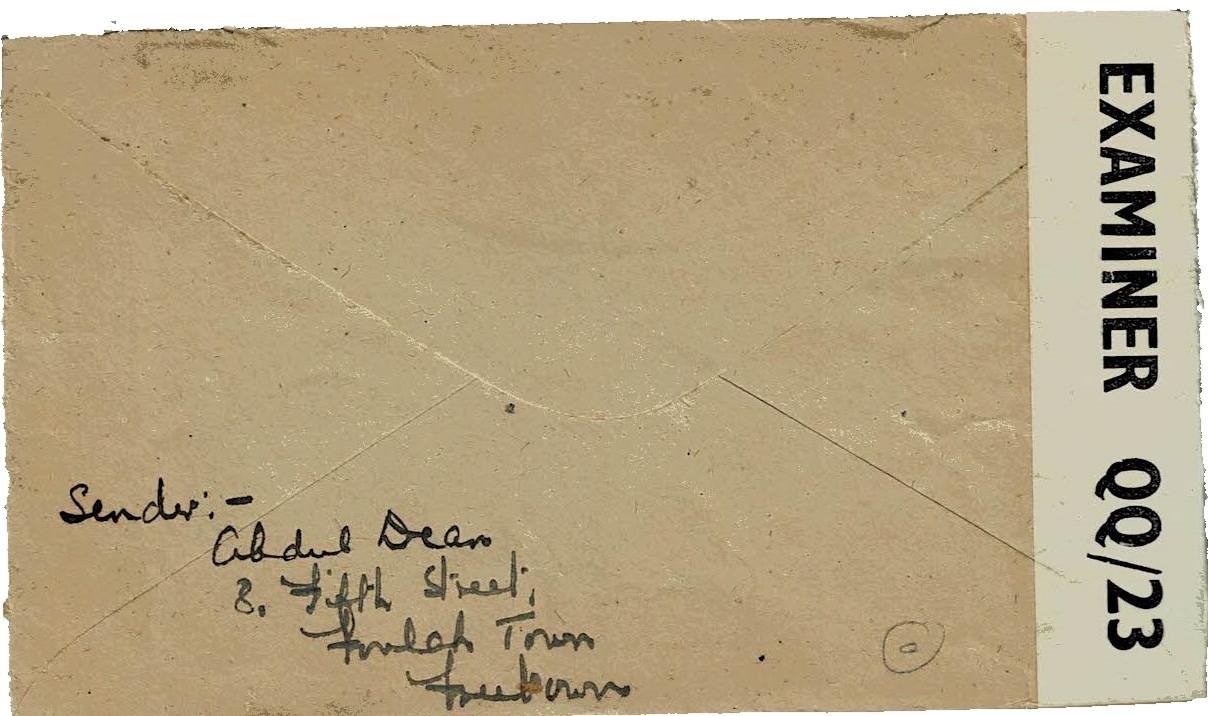 Sender:-
Abdul Dean
8. Fifth Street,
Foulah Town
Freetown
EXAMINER QQ/23